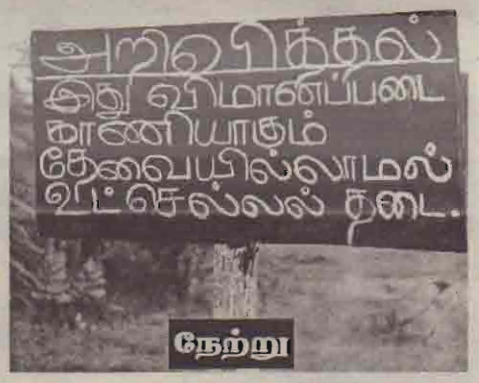 அறிவித்தல்
இது விமானப்படை
காணியாகும்
தேவையில்லாமல்
உட்செல்லல் தடை.
நேற்று